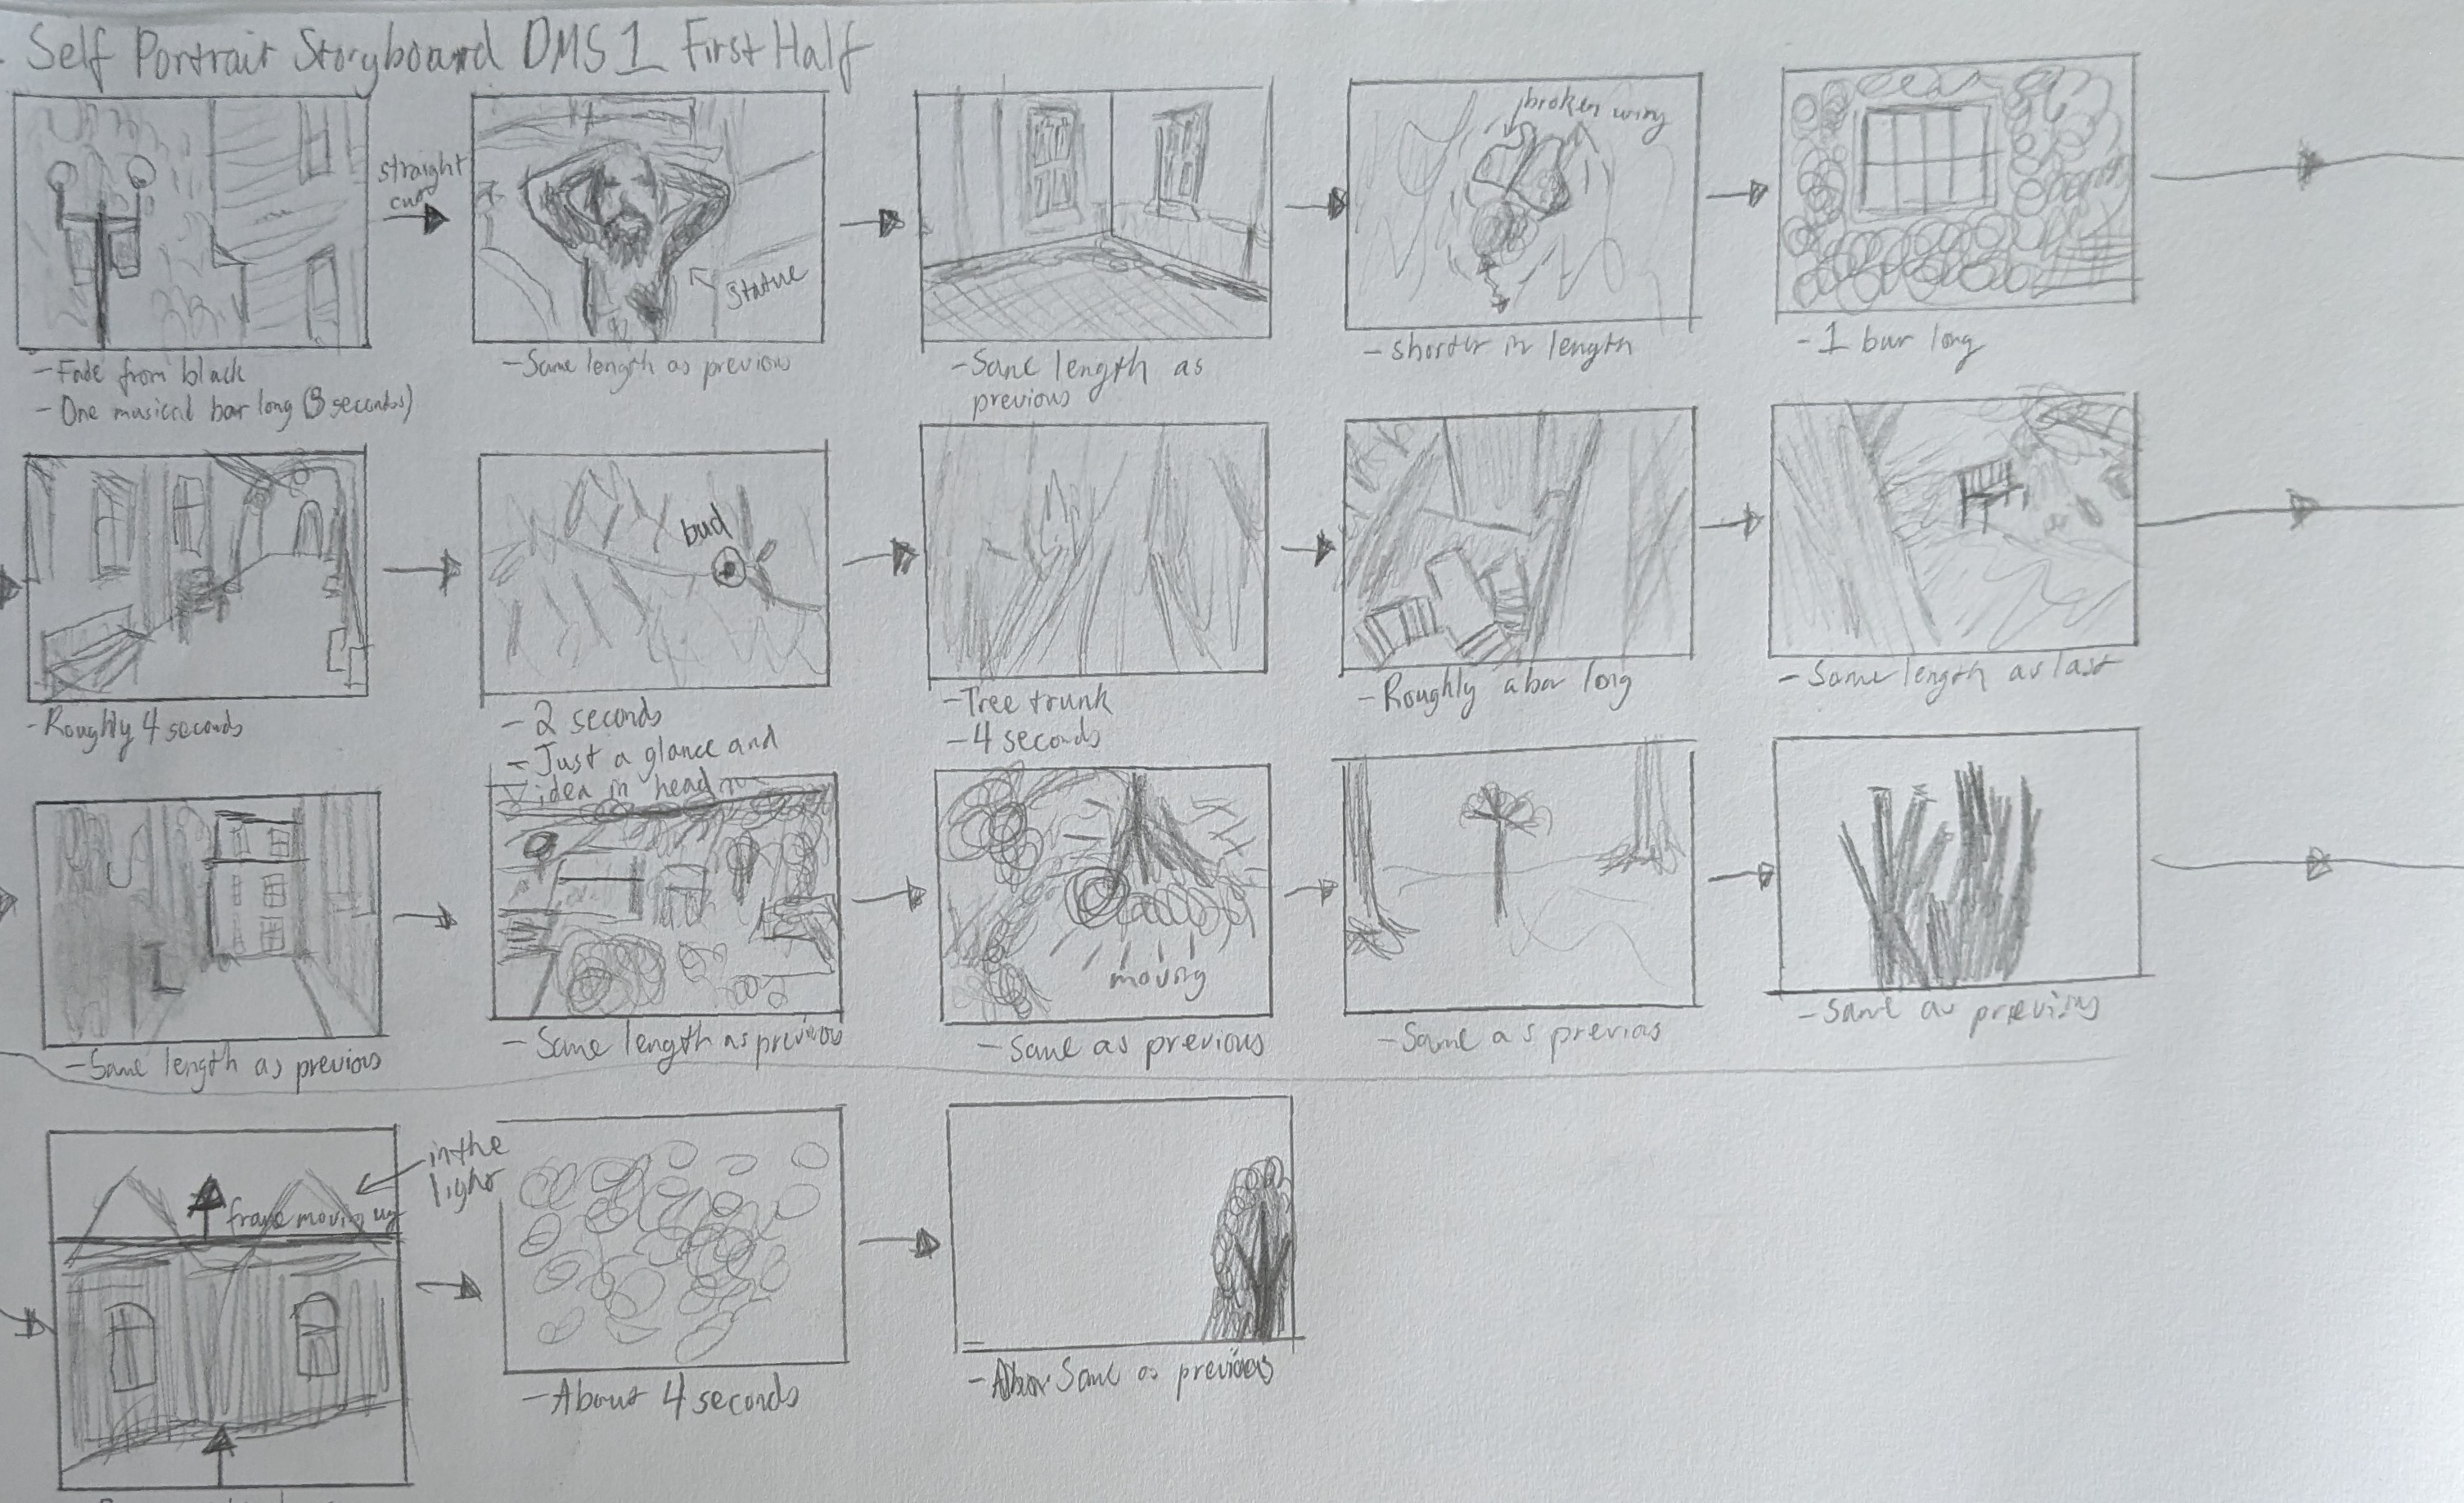 Self Portrait Storyboard DMS 1 First Half
straight
cut
statue
broken wing
- Fade from black
- One musical bar long (3 seconds)
- Same length as previous
- Same length as
previous
- shorter in length
- 1 bar long
bud
- Roughly 4 seconds
- 2 seconds
- Just a glance and
idea in head
- Tree trunk
- 4 seconds
- Roughly a bar long
- Same length as last
moving
- Same length as previous
- Same length as previous
- Same as previous
- Same as previous
- Same as previous
in the
light
frame moving up
- About 4 seconds
- Same as previous